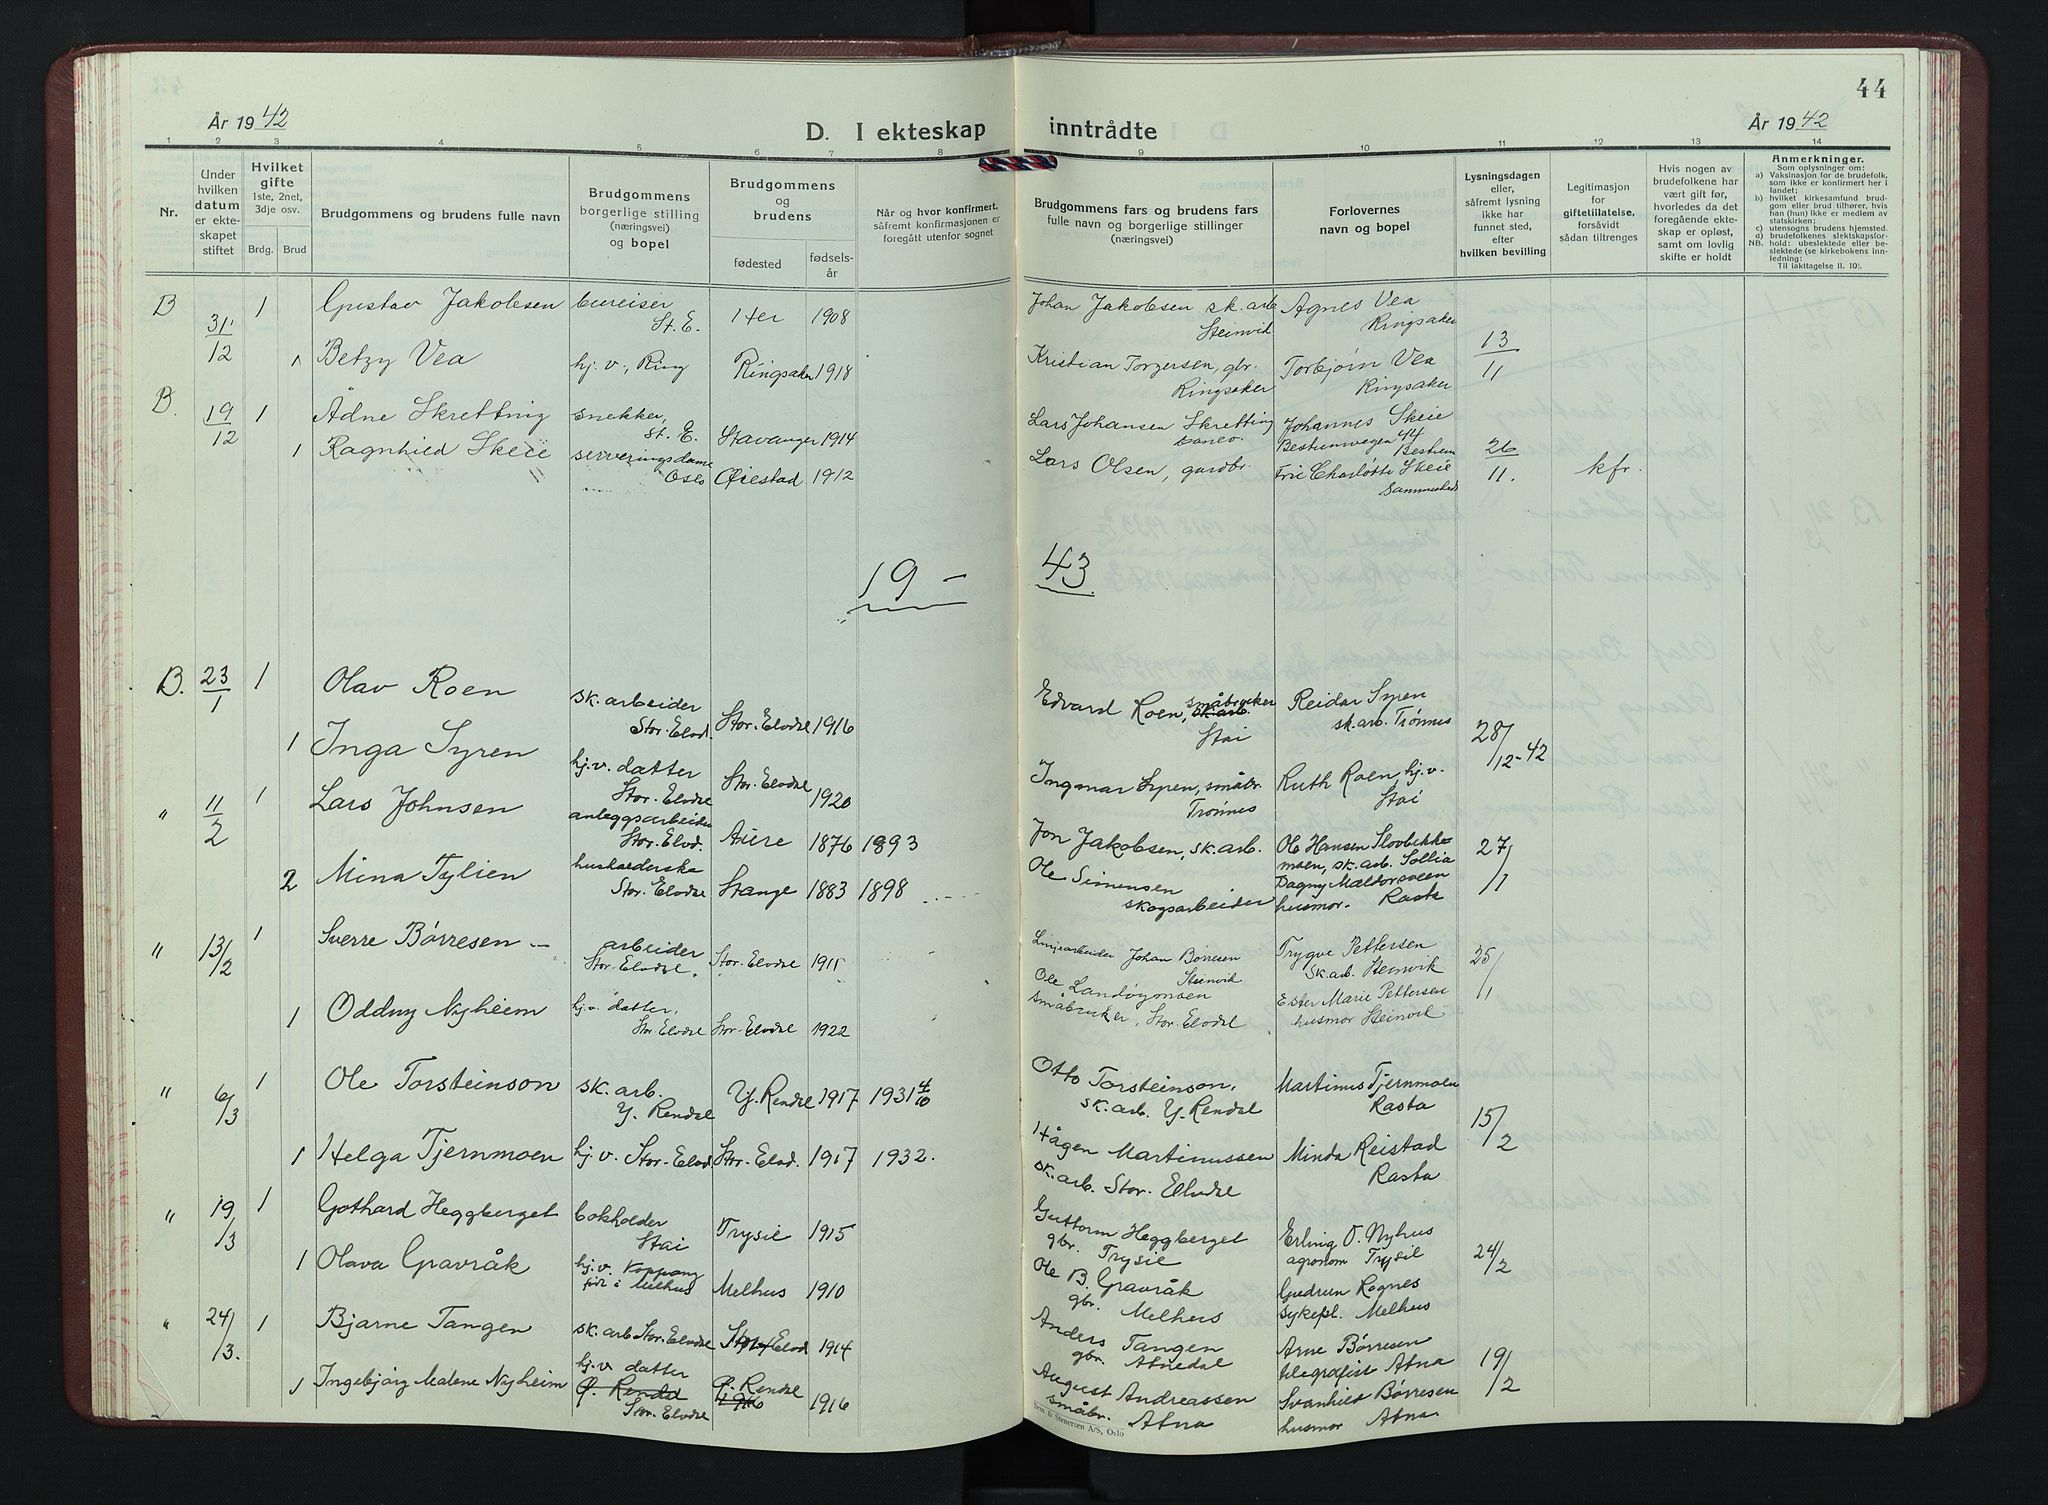 44
År 1942
D. I ekteskap inntrådte
År 1942
1 2 3 4 5 6 7 8 9 10 11 12 13 14
Nr.
Under hvilken datum er ekteskapet stiftet
Hvilket gifte 1ste, 2net, 3dje osv.
Brdg. Brud
Brudgommens og brudens fulle navn
Brudgommens borgerlige stilling (næringsvei) og bopel
Brudgommens og brudens
fødested fødselsår
Når og hvor konfirmert, såfremt konfirmasjonen er foregått utenfor sognet
Brudgommens fars og brudens fars fulle navn og borgerlige stillinger (næringsvei)
Forlovernes navn og bopel
Lysningsdagen eller, såfremt lysning ikke har funnet sted, efter hvilken bevilling
Legitimasjon for giftetillatelse, forsåvidt sådan tiltrenges
Hvis nogen av brudefolkene har vært gift før, hvorledes da det foregående ekteskap er opløst, samt om lovlig skifte er holdt
Anmerkninger.
Som oplysninger om:
a) Vaksinasjon for de brudefolk, som ikke er konfirmert her i landet;
b) hvilket kirkesamfund brudgom eller brud tilhører, hvis han (hun) ikke er medlem av statskirken;
c) utensogns brudens hjemsted.
d) brudefolkenes slektskapsforhold: ubeslektede eller beslektede (se kirkebokens innledning:
NB. Til iakttagelse II. 10).
B 31/12 1 Gustav Jakobsen bureiser St. E. 1908 Johan Jakobsen sk. arb Steinvik Agnes Vea Ringsaker 13/11
1 Betzy Vea hj. v., Ring Ringsaker 1918 Kristian Torgersen, gbr. Ringsaker Torbjørn Vea Ringsaker
B. 19/12 1 Ådne Skretting snekker, St. E. Stavanger 1914 Lars Johansen Skretting Johannes Skeie Bestumvegen 44 Bestum 26/11.
1 Ragnhild Skeie serveringsdame Oslo Øiestad 1912 Lars Olsen, gardbr. Frk Charlotte Skeie kfr.
19 - 43
B. 23/1 1 Olav Roen sk. arbeider Stor-Elvd. Stor-Elvdal 1916 Edvard Roen, småbruker sk. arb. Stai Reidar Syren sk. arb. Trønnes 28/12-42
1 Inga Syren hj. v. datter Stor-Elvdal Stor-Elvdal 1920 Ingmar Syren, småbr. Trønnes Ruth Roen, hj. v. Stai
" 11/2 1 Lars Johnsen anleggsarbeider Stor-Elvd. Aure 1876 1893 Jon Jakobsen, sk. arb. Ole Hansen Slovbikkemoen, sk. arb. Sollia 27/1
2 Mina Tylien husholderske Stor-Elvdal Stange 1883 1898 Ole Simensen skogsarbeider Dagny Mældorsveen husmor. Rasta
" 13/2 1 Sverre Børresen arbeider Stor-Elvdal. Stor-Elvdal 1911 Linjearbeider Johan Børresen Steinvik Trygve Pettersen sk. arb. Steinvik 25/1
1 Oddny Nyheim hj. v. datter, Stor-Elvdal Stor-Elvdal 1922 Ole Landøgonsen småbruker, Stor-Elvdal Ester Marie Pettersen husmor Steinvik
" 6/3 1 Ole Torsteinson sk. arb. Y. Rendal Y. Rendal 1917 1931 4/10 Otto Torsteinson, sk. arb. Y. Rendal Martinus Tjernmoen Rasta 15/2
1 Helga Tjernmoen hj. v. Stor-Elvd. Stor-Elvd. 1917 1932. Hågen Martinussen sk. arb. Stor-Elvdal Minda Reistad Rasta
" 19/3 1 Gothard Heggberget bokholder Stai Trysil 1915 Guttorm Heggberget gbr. Trysil Erling O. Nyhus agronom Trysil 24/2
1 Olava Gravråk hj. v. Koppang før i Melhus Melhus 1910 Ole B. Gravråk gbr. Melhus Gudrun Rognes sykepl. Melhus
" 24/3. 1 Bjarne Tangen sk. arb Stor-Elvdal Stor-Elvd 1914 Anders Tangen gbr. Atnedal Arne Børresen telegrafist Atna 19/2
1 Ingebjørg Malene Nyheim hj. v. datter Ø. Rendal Stor-Elvdal Ø. Rendal 1916 1916 August Andreassen småbr. Atna Svanhild Børresen husmor Atna.
Sem & Stenersen A/S, Oslo